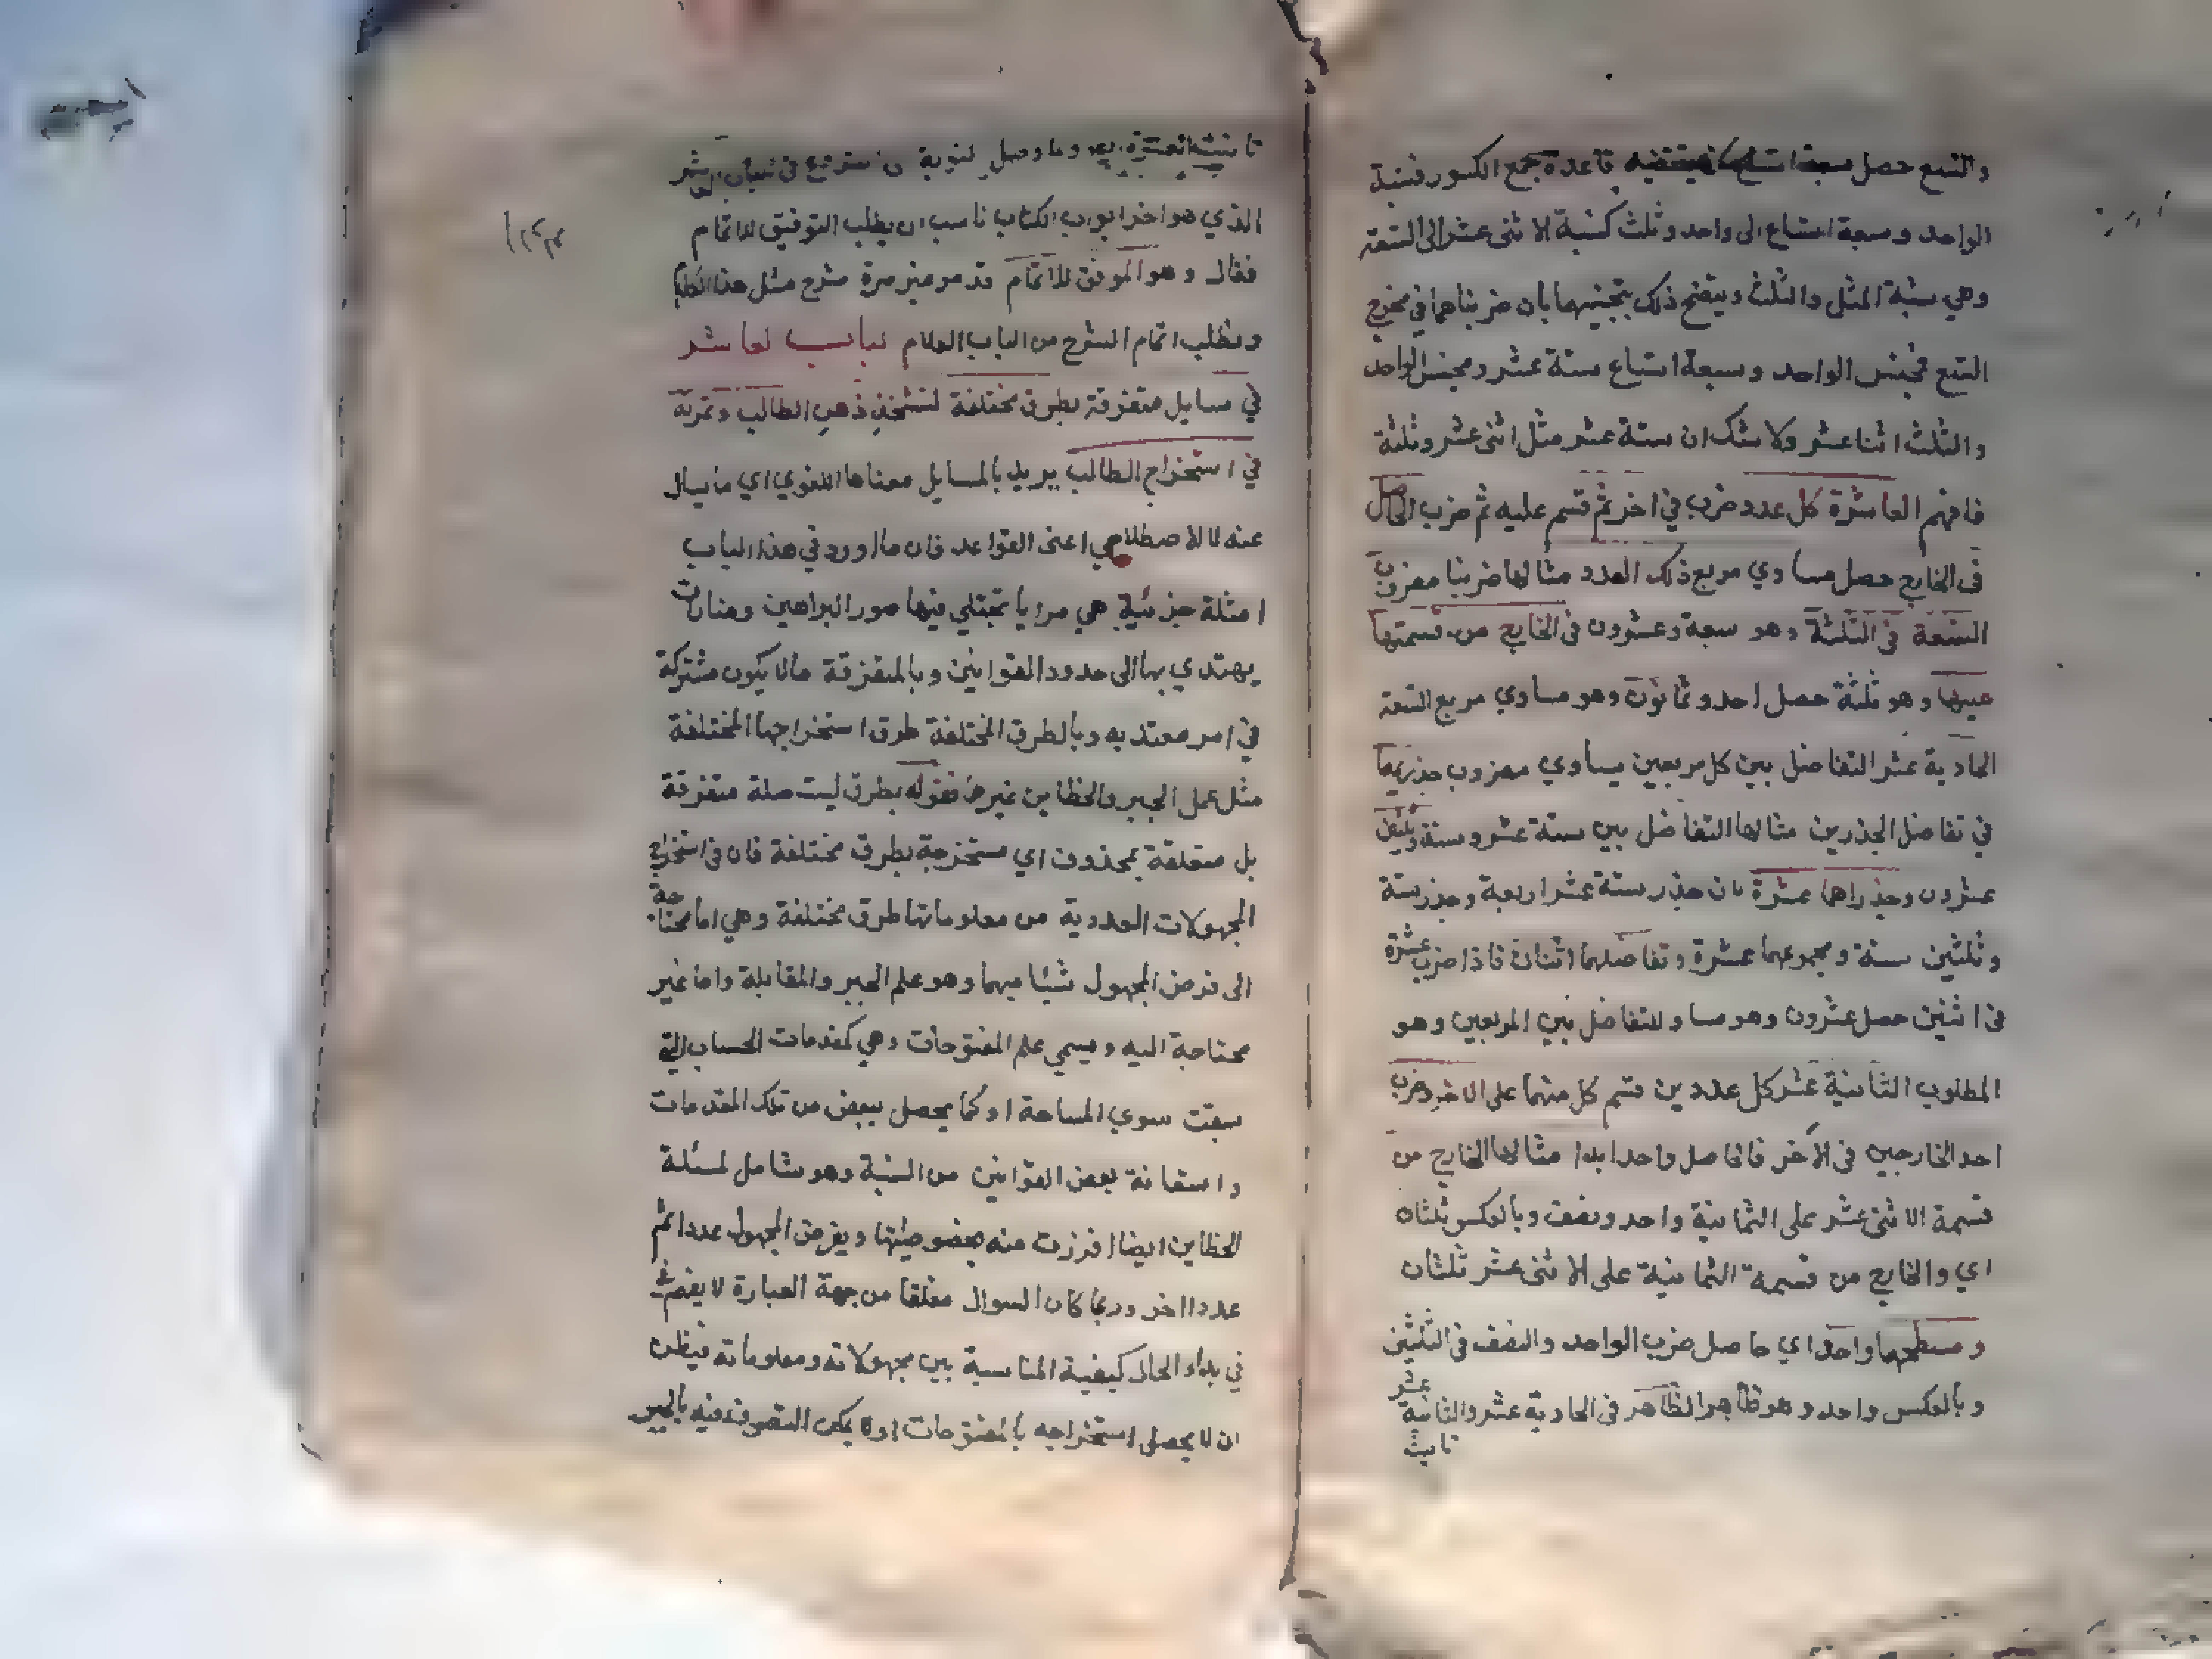 والتسع حصل سبعة اتساع كما يقتضيه قاعدة جمع الكسور فنسبة
الواحد وسبعة اتساع الى واحد وثلث كنسبة الاثنى عشر الى التسعة
وهي نسبة المثل والثلث ويتضح ذلك بتجنيسهما بان ضربناهما في مخرج
التسع فمجنس الواحد وسبعة اتساع ستة عشر ومجنس الواحد
والثلث اثنا عشر ولا شك ان ستة عشر مثل اثنى عشر وثلثة
فافهم العاشرة كل عدد ضرب في اخر ثم قسم عليه ثم ضرب الحاصل
في الخارج حصل مساوي مربع ذلك العدد مثالها ضربنا مضروب
التسعة في الثلثة وهو سبعة وعشرون في الخارج من قسمتها
عليها وهو ثلثة حصل احد وثمانون وهو مساوي مربع التسعة
الحادية عشر التفاضل بين كل مربعين يساوي مضروب جذريهما
في تفاضل الجذرين مثالها التفاضل بين ستة عشر وستة وثلثين
عشرون وجذراهما عشرة لان جذر ستة عشر اربعة وجذر ستة
وثلثين ستة ومجموعهما عشرة وتفاضلهما اثنان فاذا ضرب عشرة
في اثنين حصل عشرون وهو مساو للتفاضل بين المربعين وهو
المطلوب الثانية عشر كل عددين قسم كل منهما على الاخر وضرب
احد الخارجين في الآخر فالحاصل واحد ابدا مثالها الخارج من
قسمة الاثنى عشر على الثمانية واحد ونصف وبالعكس ثلثان
اي والخارج من قسمة الثمانية على الاثنى عشر ثلثان
ومسطحهما واحد اي حاصل ضرب الواحد والنصف في الثلثين
وبالعكس واحد وهو ظاهر الظاهر في الحادية عشر والثانية عشر
تانيث
وما وصل نوبة
الذي هو اخر ابواب الكتاب ناسب ان يطلب التوفيق للاتمام
فقال وهو الموفق للاتمام قد مر غير مرة شرح مثل هذا الكلام
ونطلب اتمام الشرح من الباب العلام الباب العاشر
في مسايل متفرقة بطرق مختلفة لتشحذ ذهن الطالب وتمرنه
في استخراج المطالب يريد بالمسايل معناها اللغوي اي ما يسال
عنه لا الاصطلاحي اعنى القواعد فان ما اورد في هذا الباب
امثلة جزئية هي مرايا تجتلي فيها صور البراهين ومنارات
يهتدي بها الى حدود القوانين وبالمتفرقة مالا يكون مشتركة
في امر معتد به وبالطرق المختلفة طرق استخراجها المختلفة
مثل عمل الجبر والخطاين غيرها فقوله بطرق ليست صلة متفرقة
بل متعلقة بمحذوف اي مستخرجة بطرق مختلفة فان في استخراج
المجهولات العددية من معلوماتها طرق مختلفة وهي اما محتاجة
الى فرض المجهول شيئا مبهما وهو علم الجبر والمقابلة واما غير
محتاجة اليه ويسمي علم المفتوحات وهي كمقدمات الحساب التي
سبقت سوي المساحة او كما يحصل ببعض من تلك المقدمات
واستعانة بعض القوانين من النسبة وهو شامل لمسئلة
الخطاين ايضا افرزت منه بخصوصيتها ويفرض المجهول عددا ثم
عددا اخر وربما كان السوال مغلقا من جهة العبارة لا يفهم
في بداء الحال كيفية المناسبة بين مجهولاته ومعلوماته فيظن
ان لا يحصل استخراجه بالمفتوحات اولا يمكن التصرف فيه بالجبر